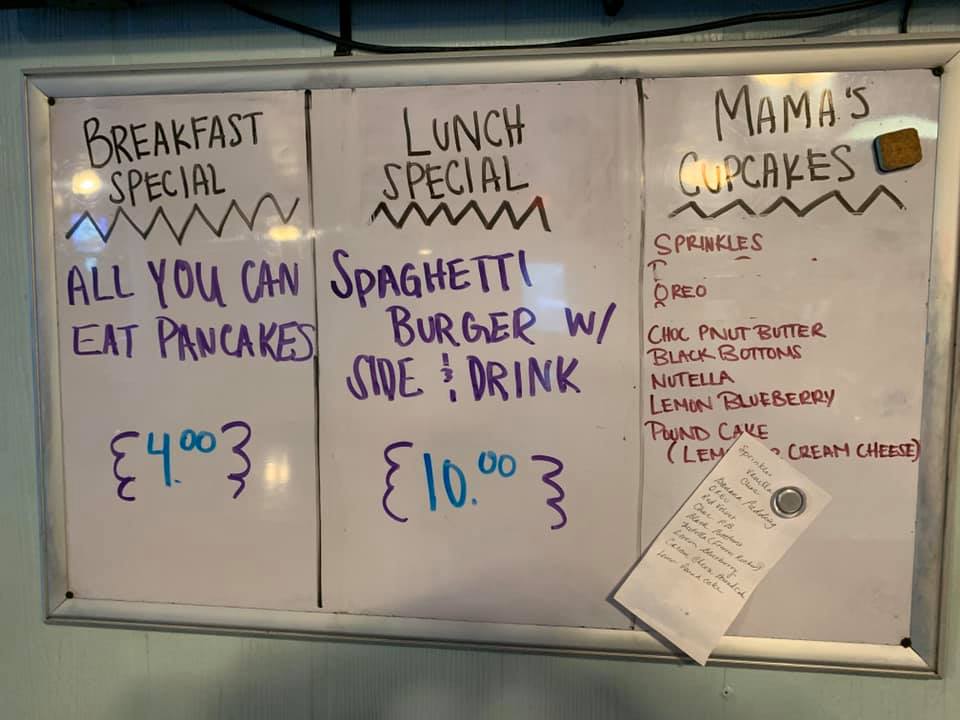 BREAKFAST
SPECIAL
ALL YOU CAN
EAT PANCAKES
{4.00}
LUNCH
SPECIAL
SPAGHETTI
BURGER W/
SIDE & DRINK
{10.00}
MAMA'S
CUPCAKES
SPRINKLES
OREO
CHOC PNUT BUTTER
BLACK BOTTOMS
NUTELLA
LEMON BLUEBERRY
POUND CAKE
(LEM CREAM CHEESE)
Sprinkles
Vanilla
Banana Pudding
OREO
Red Velvet
Choc PB
Black Bottoms
Nutella
Lemon Blueberry
Cream Cheese
Lemon Pound Cake